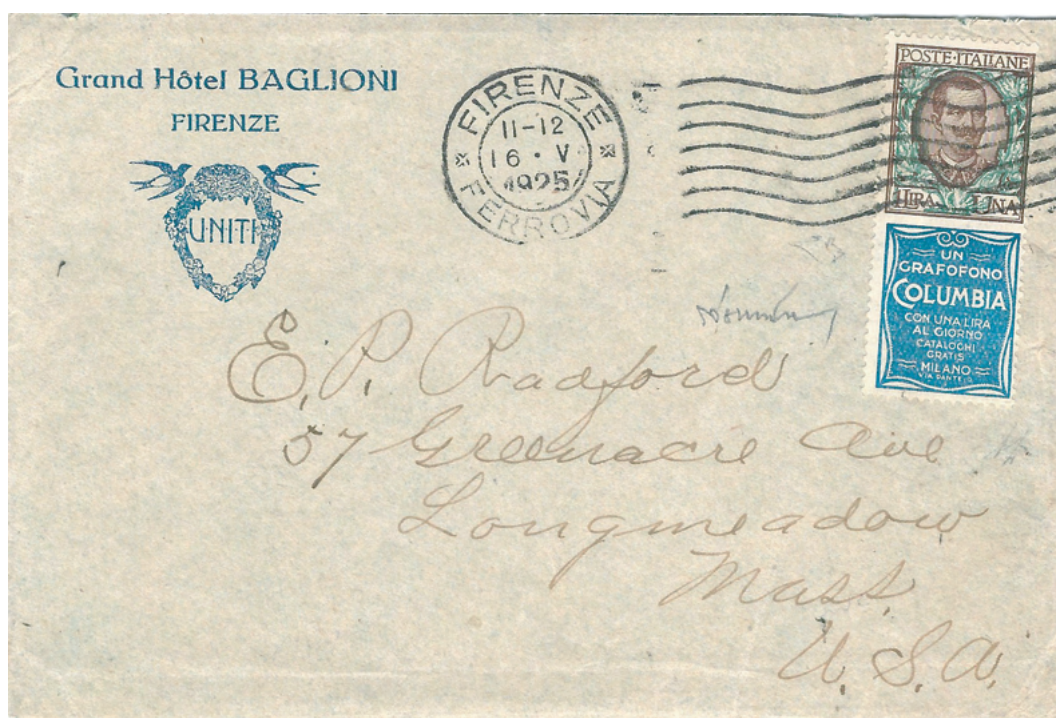 Grand Hôtel BAGLIONI
FIRENZE
UNITI
FIRENZE
11-12
16 · V
1925
FERROVIA
POSTE·ITALIANE
LIRA UNA
UN
GRAFOFONO
COLUMBIA
CON UNA LIRA
AL GIORNO
CATALOGHI
GRATIS
MILANO
VIA DANTE 9
E. P. Radford
57 Greenacre Ave
Longmeadow
Mass.
U. S. A.